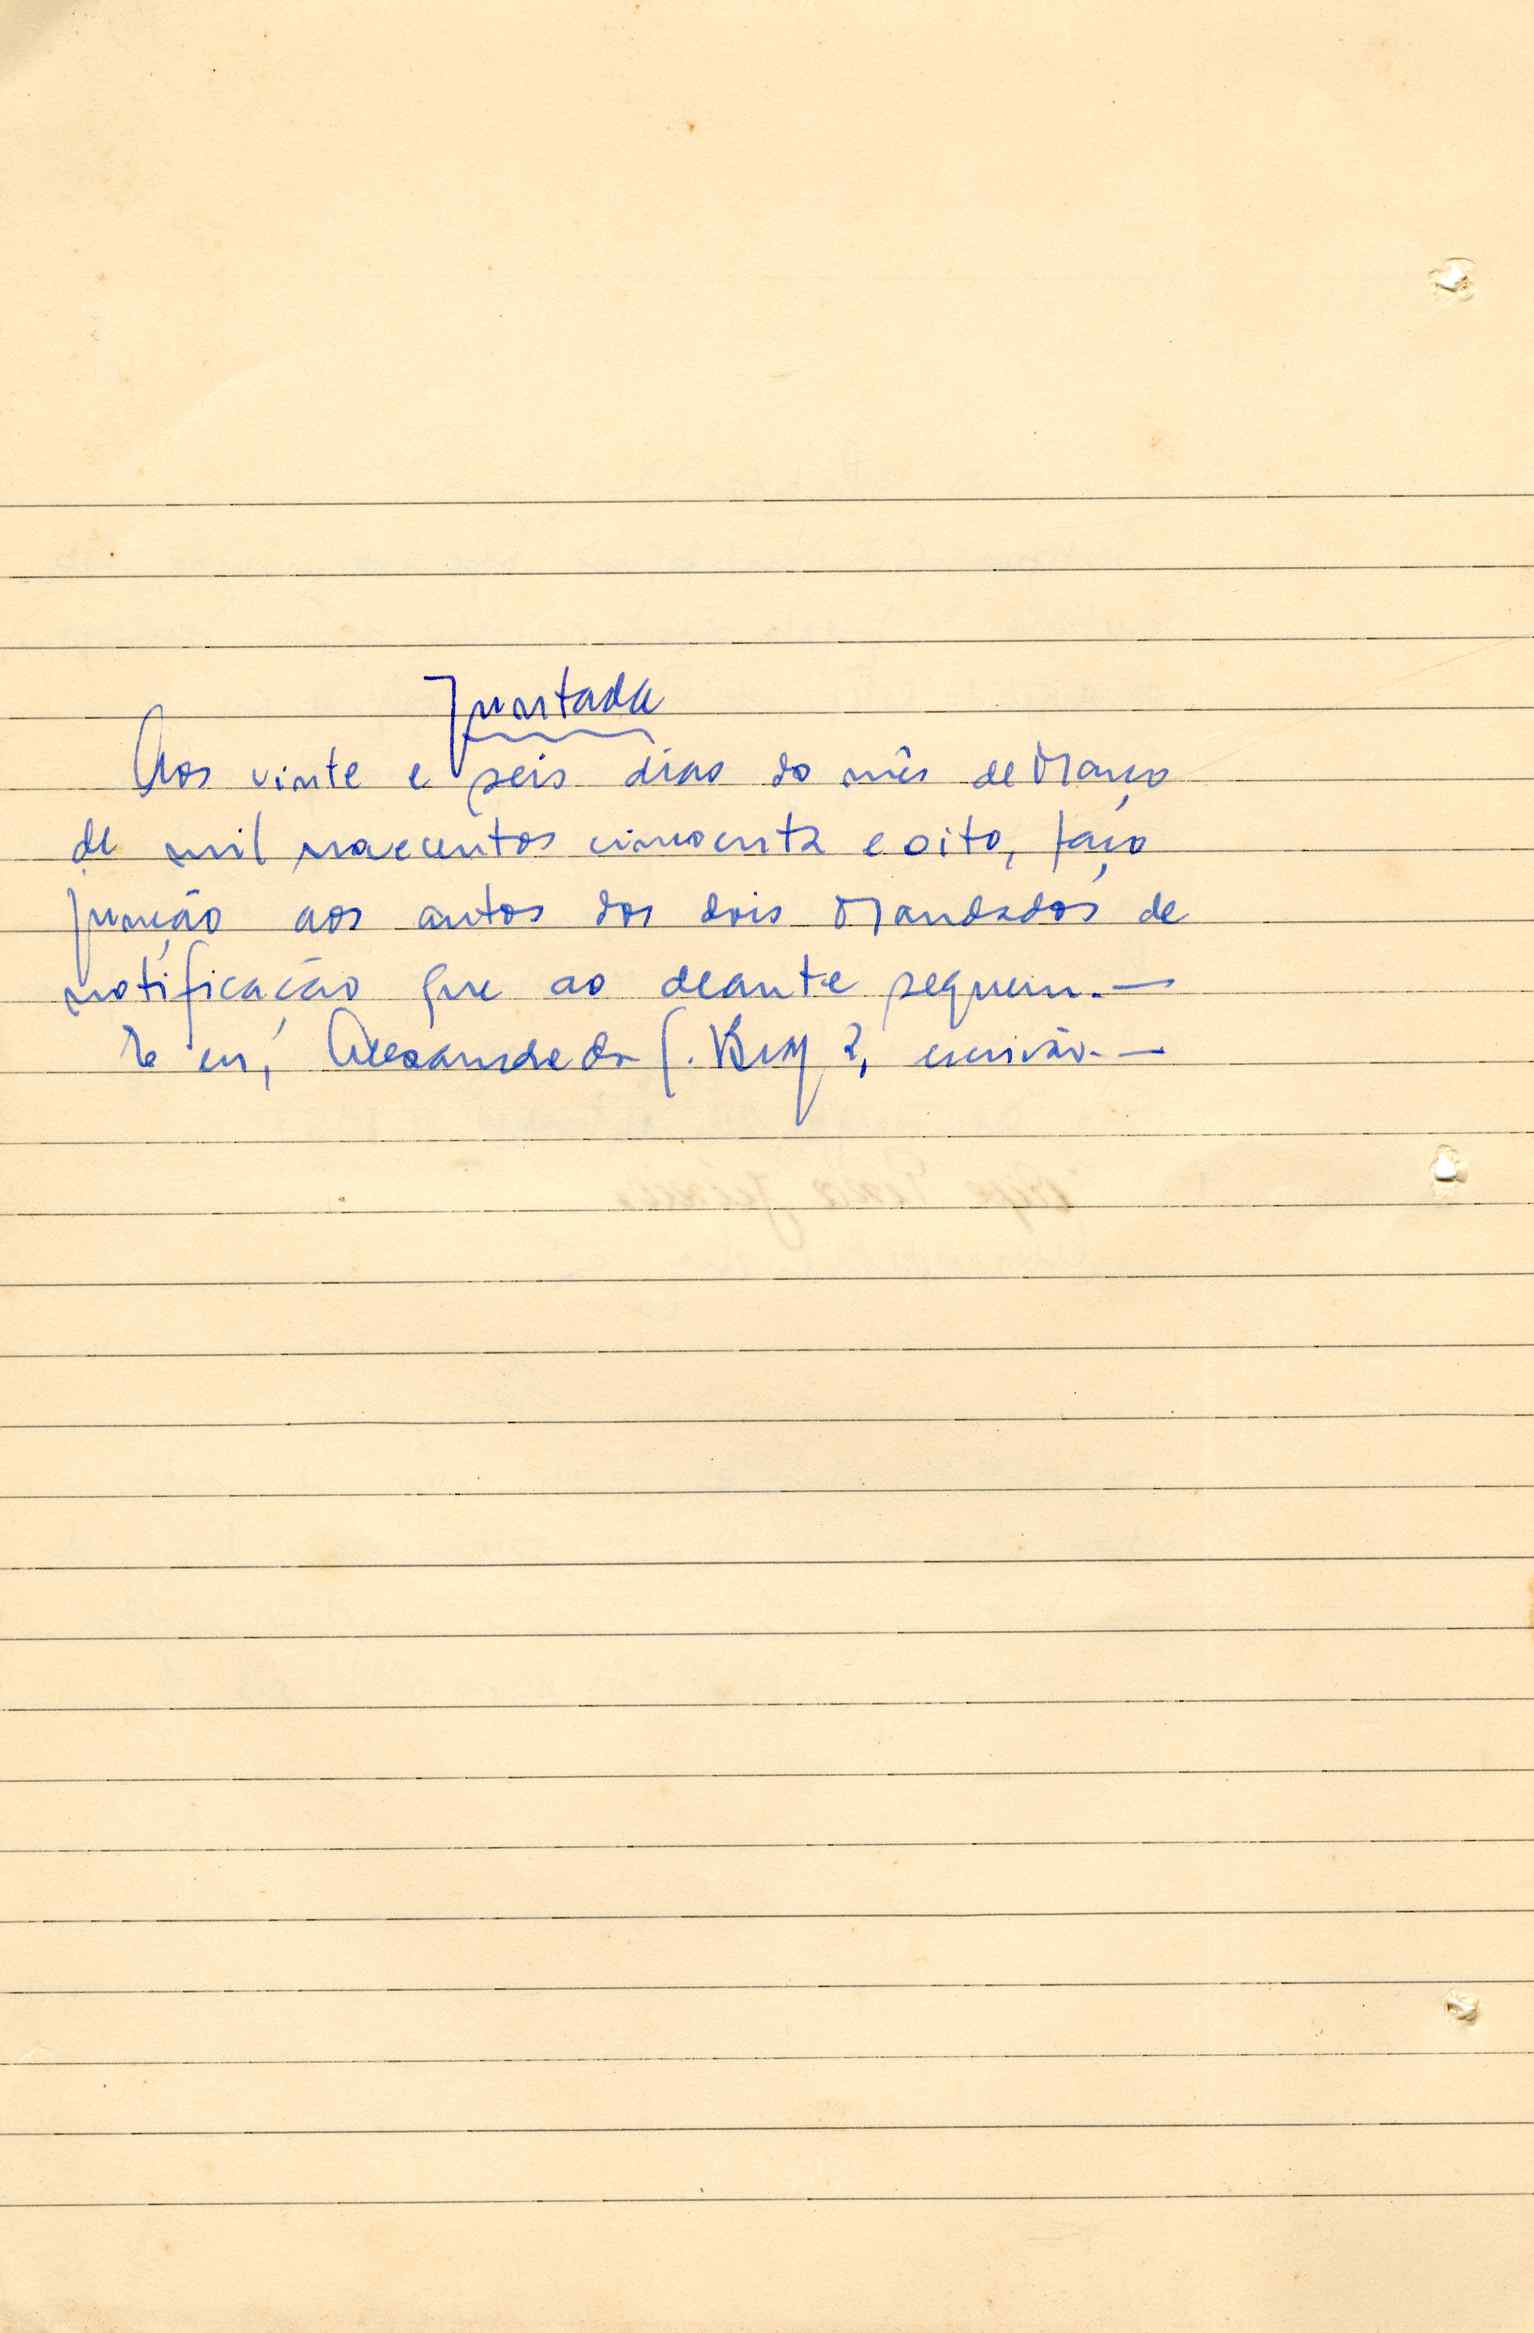 Juntada
Aos vinte e seis dias do mês de Março
de mil novecentos cincoenta e oito, faço
junção aos autos dos dois Mandados de
notificação que ao deante seguem. —
eu, Alexandre da escrivão. —